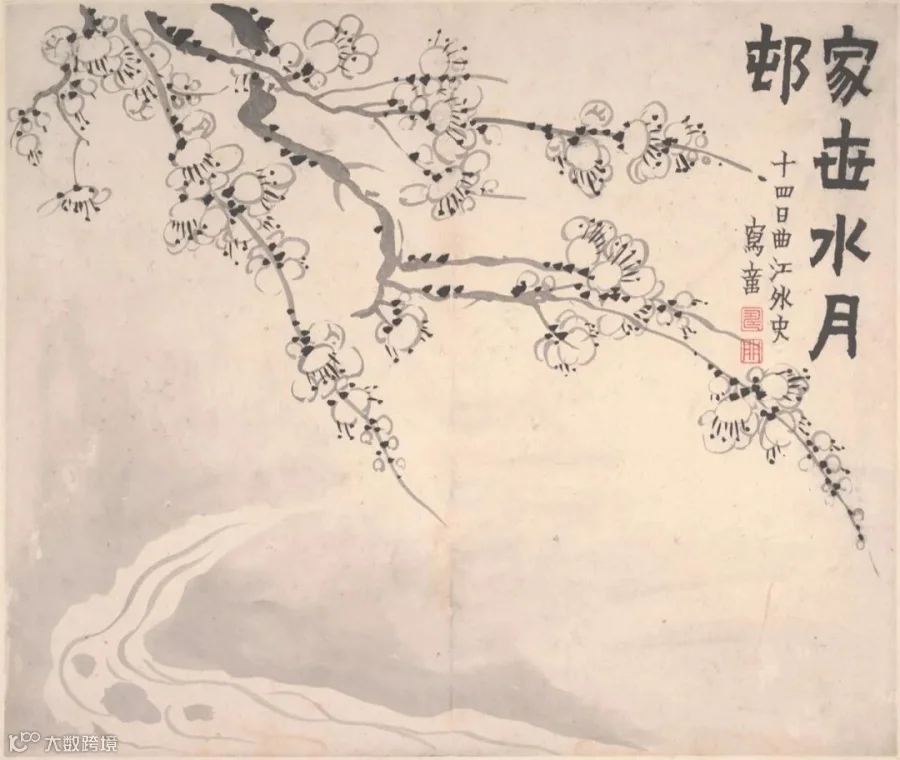 家世水月
邨
十四日曲江外史
寫
大数跨境